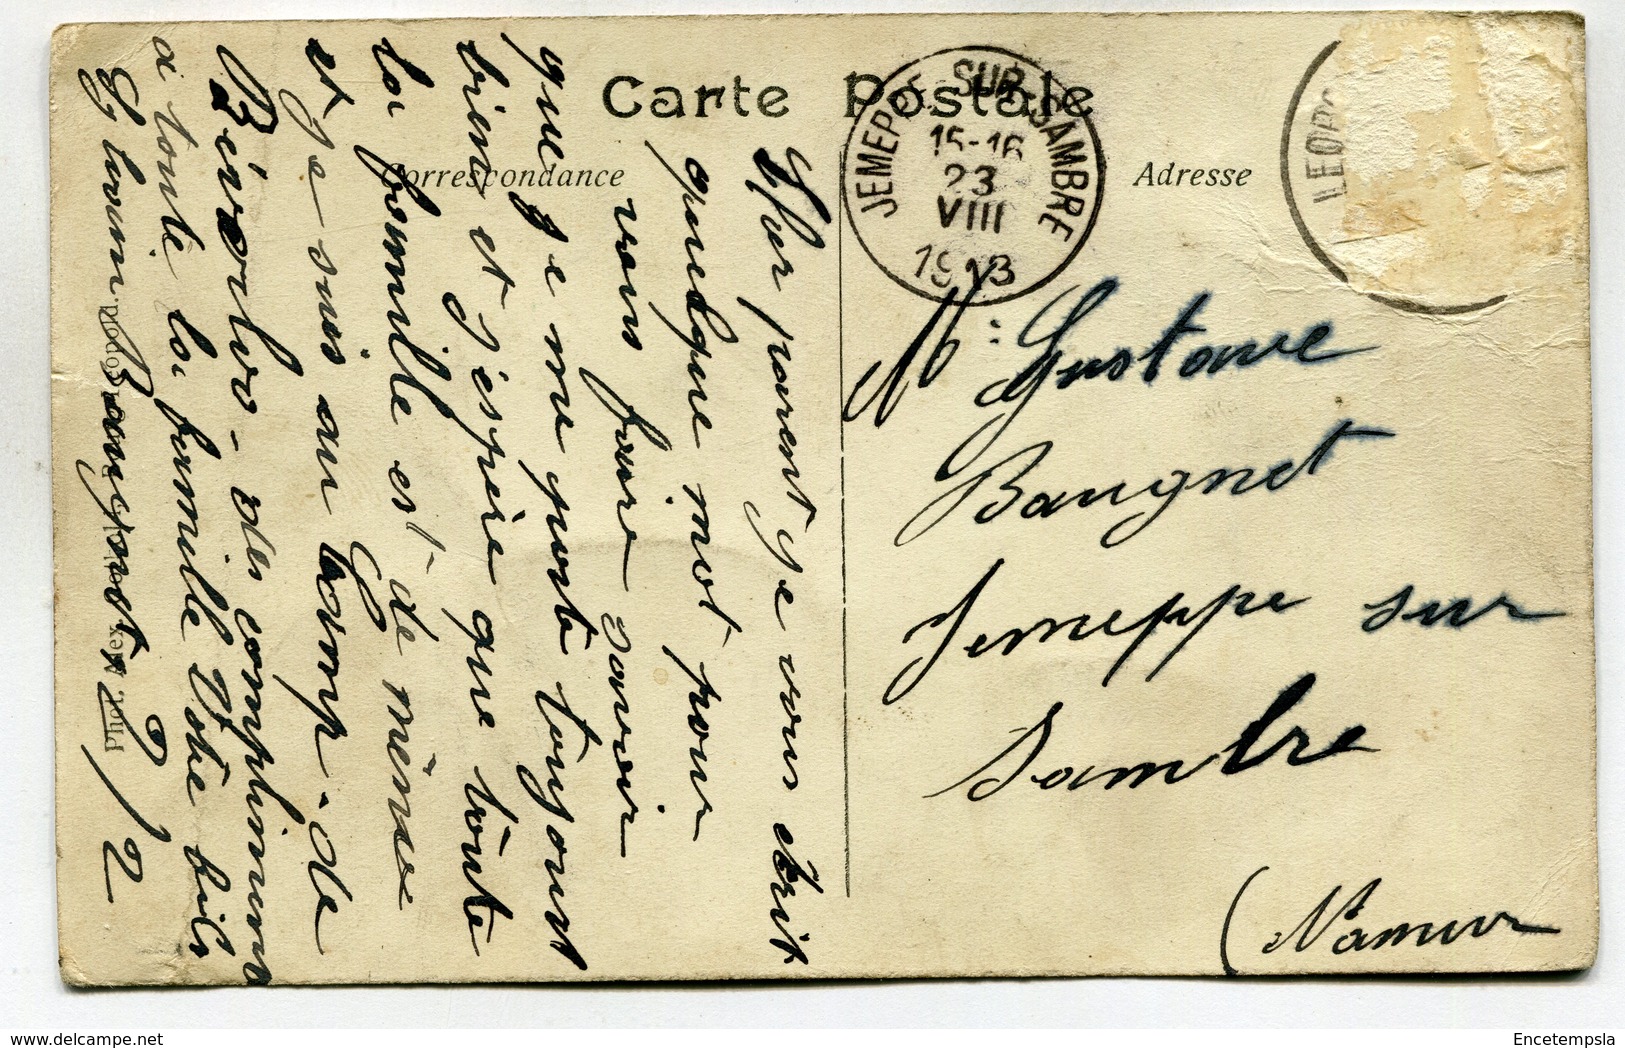 Carte Postale
Correspondance
Adresse
JEMEPPE-SUR-SAMBRE
15-16
23
VIII
1913
LEOPO
Cher parent je vous écrit
quelque mot pour
vous faire savoir
que je me porte toujours
bien et j'espère que toute
la famille est de même
et je suis au camp. de
Béverloo - des compliments
a toute la famille Votre fils
Baugnet,
2/2
Mr: Gustave
Baugnet
Jemeppe sur
Sambre
(Namur
Encetempsla